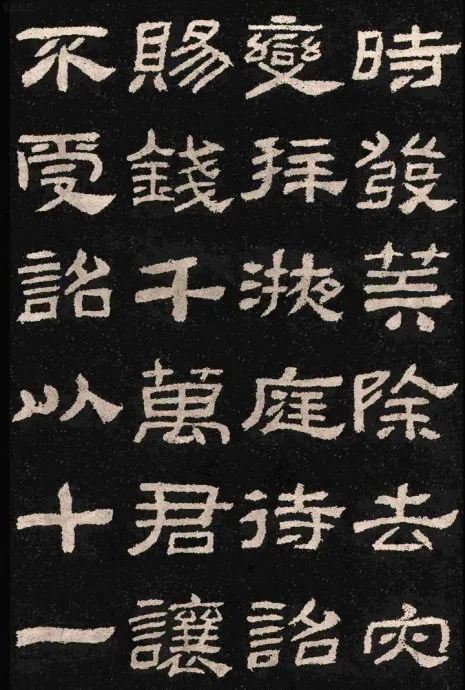 時發算除去灾
變拜掖庭待詔
賜錢千萬君讓
不受詔以十一